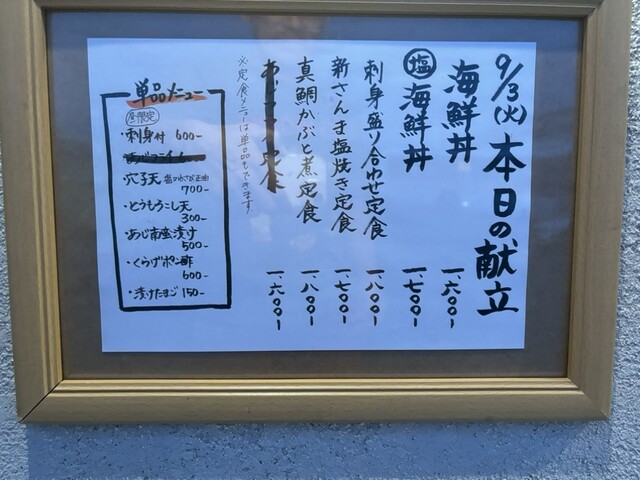 9/3(火) 本日の献立
海鮮丼 一、六〇〇-
塩 海鮮丼 一、七〇〇-
刺身盛り合わせ定食 一、八〇〇-
新さんま塩焼き定食 一、七〇〇-
真鯛かぶと煮定食 一、八〇〇-
一、六〇〇-
※定食メニューは単品もできます
単品メニュー
昼限定
・刺身付 600-
・穴子天 塩 わさび 正油
700-
・とうもろこし天
300-
・あじ南蛮漬け
500-
・くらげポン酢
600-
・漬けたまご 150-